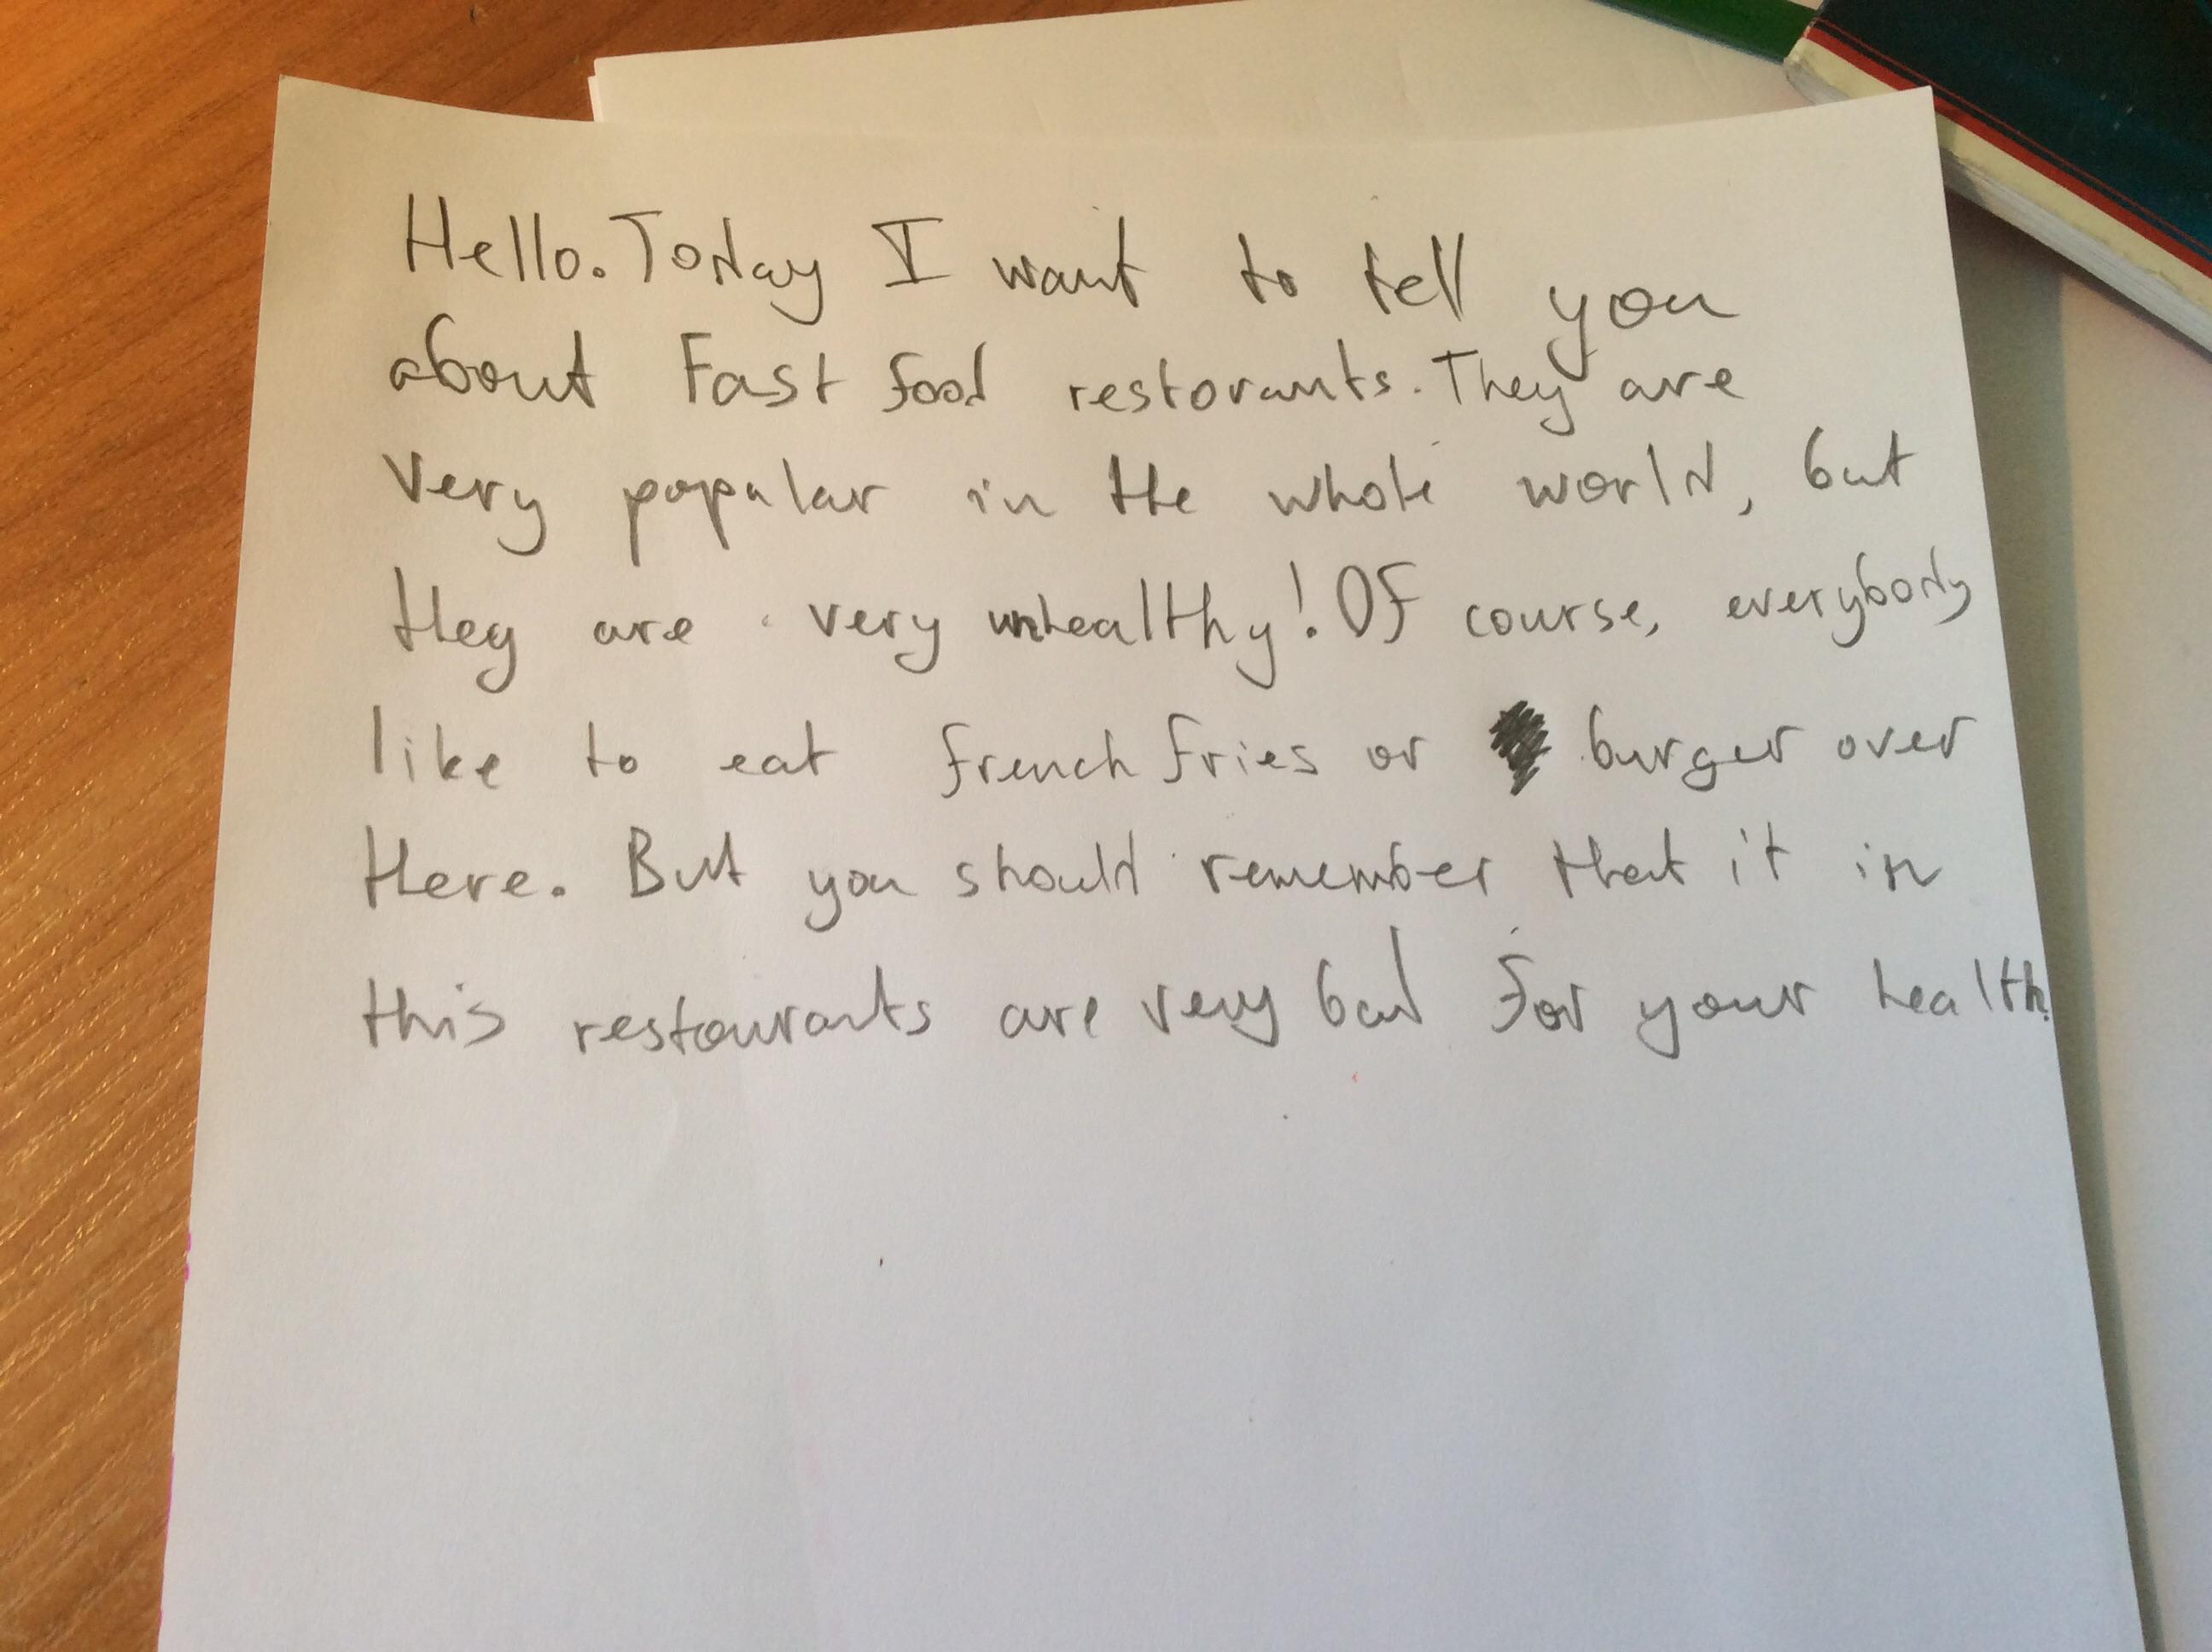 Hello. Today I want to tell you
about Fast food restorants. They are
very popular in the whole world, but
they are very unhealthy! Of course, everybody
like to eat french fries or burger over
there. But you should remember that it in
this restaurants are very bad for your health.